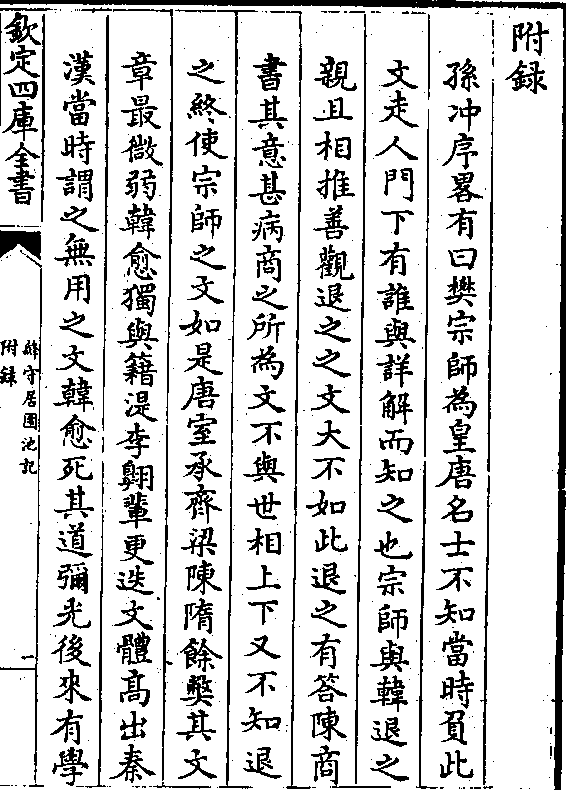 附録
孫冲序畧有曰樊宗師為皇唐名士不知當時負此
文走人門下有誰與詳解而知之也宗師與韓退之
親且相推善觀退之之文大不如此退之有答陳商
書其意甚病商之所為文不與世相上下又不知退
之終使宗師之文如是唐室承齊梁陳隋餘弊其文
章最微弱韓愈獨與籍湜李翺輩更迭文體髙出秦
漢當時謂之無用之文韓愈死其道彌光後來有學
欽定四庫全書
絳守居園池記
附録
一